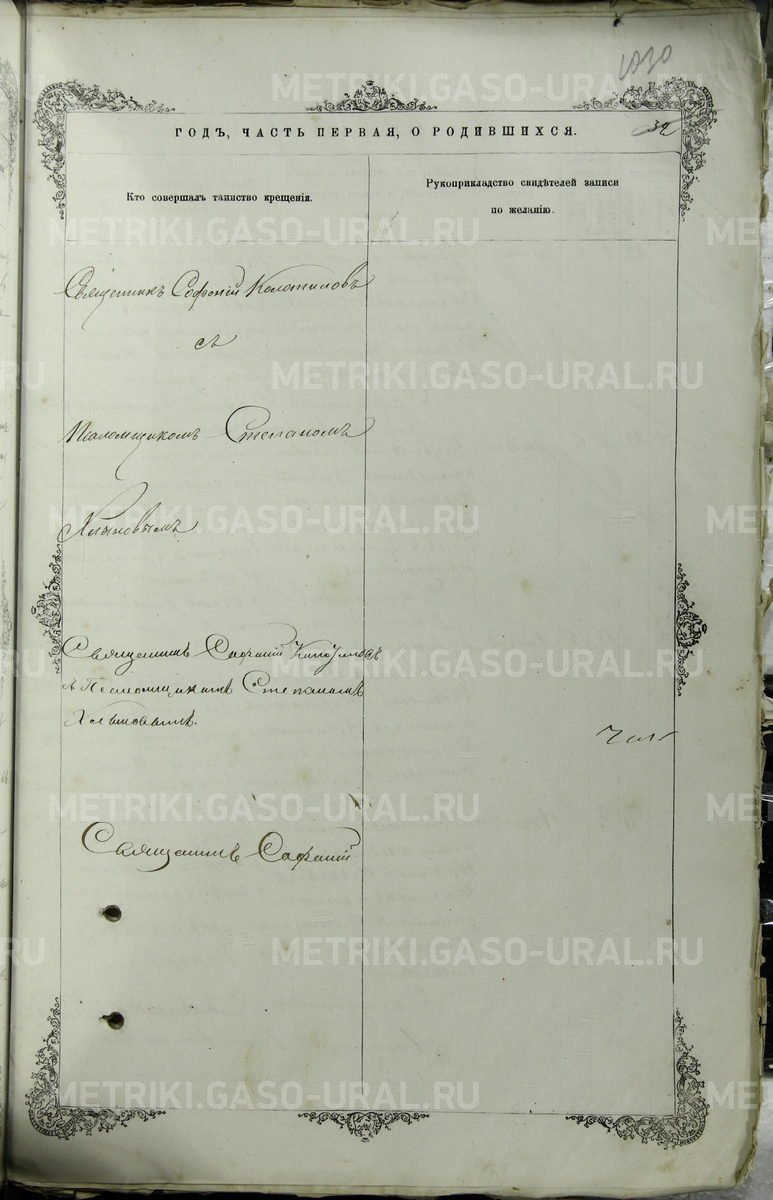 1030
32
ГОДЪ, ЧАСТЬ ПЕРВАЯ, О РОДИВШИХСЯ.
Кто совершалъ таинство крещенія.
Рукоприкладство свидѣтелей записи
по желанію.
Священникъ Софоній
съ
Псаломщикомъ Степаномъ
Хлыновымъ
Священникъ Софоній
и Псаломщикомъ Степаномъ
Хлыновымъ.
Священникъ Софоній
METRIKI.GASO-URAL.RU